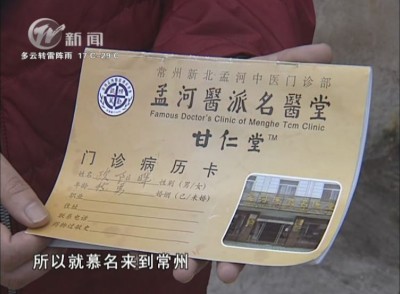 新闻
多云转雷阵雨 17℃~29℃
常州新北孟河中医门诊部
孟河醫派名醫堂
Famous Doctor's Clinic of Menghe Tcm Clinic
甘仁堂™
门诊病历卡
姓名 性别(男/女)
年龄 婚姻(已/未婚)
职业
住址
联系电话
药物过敏史
所以就慕名来到常州